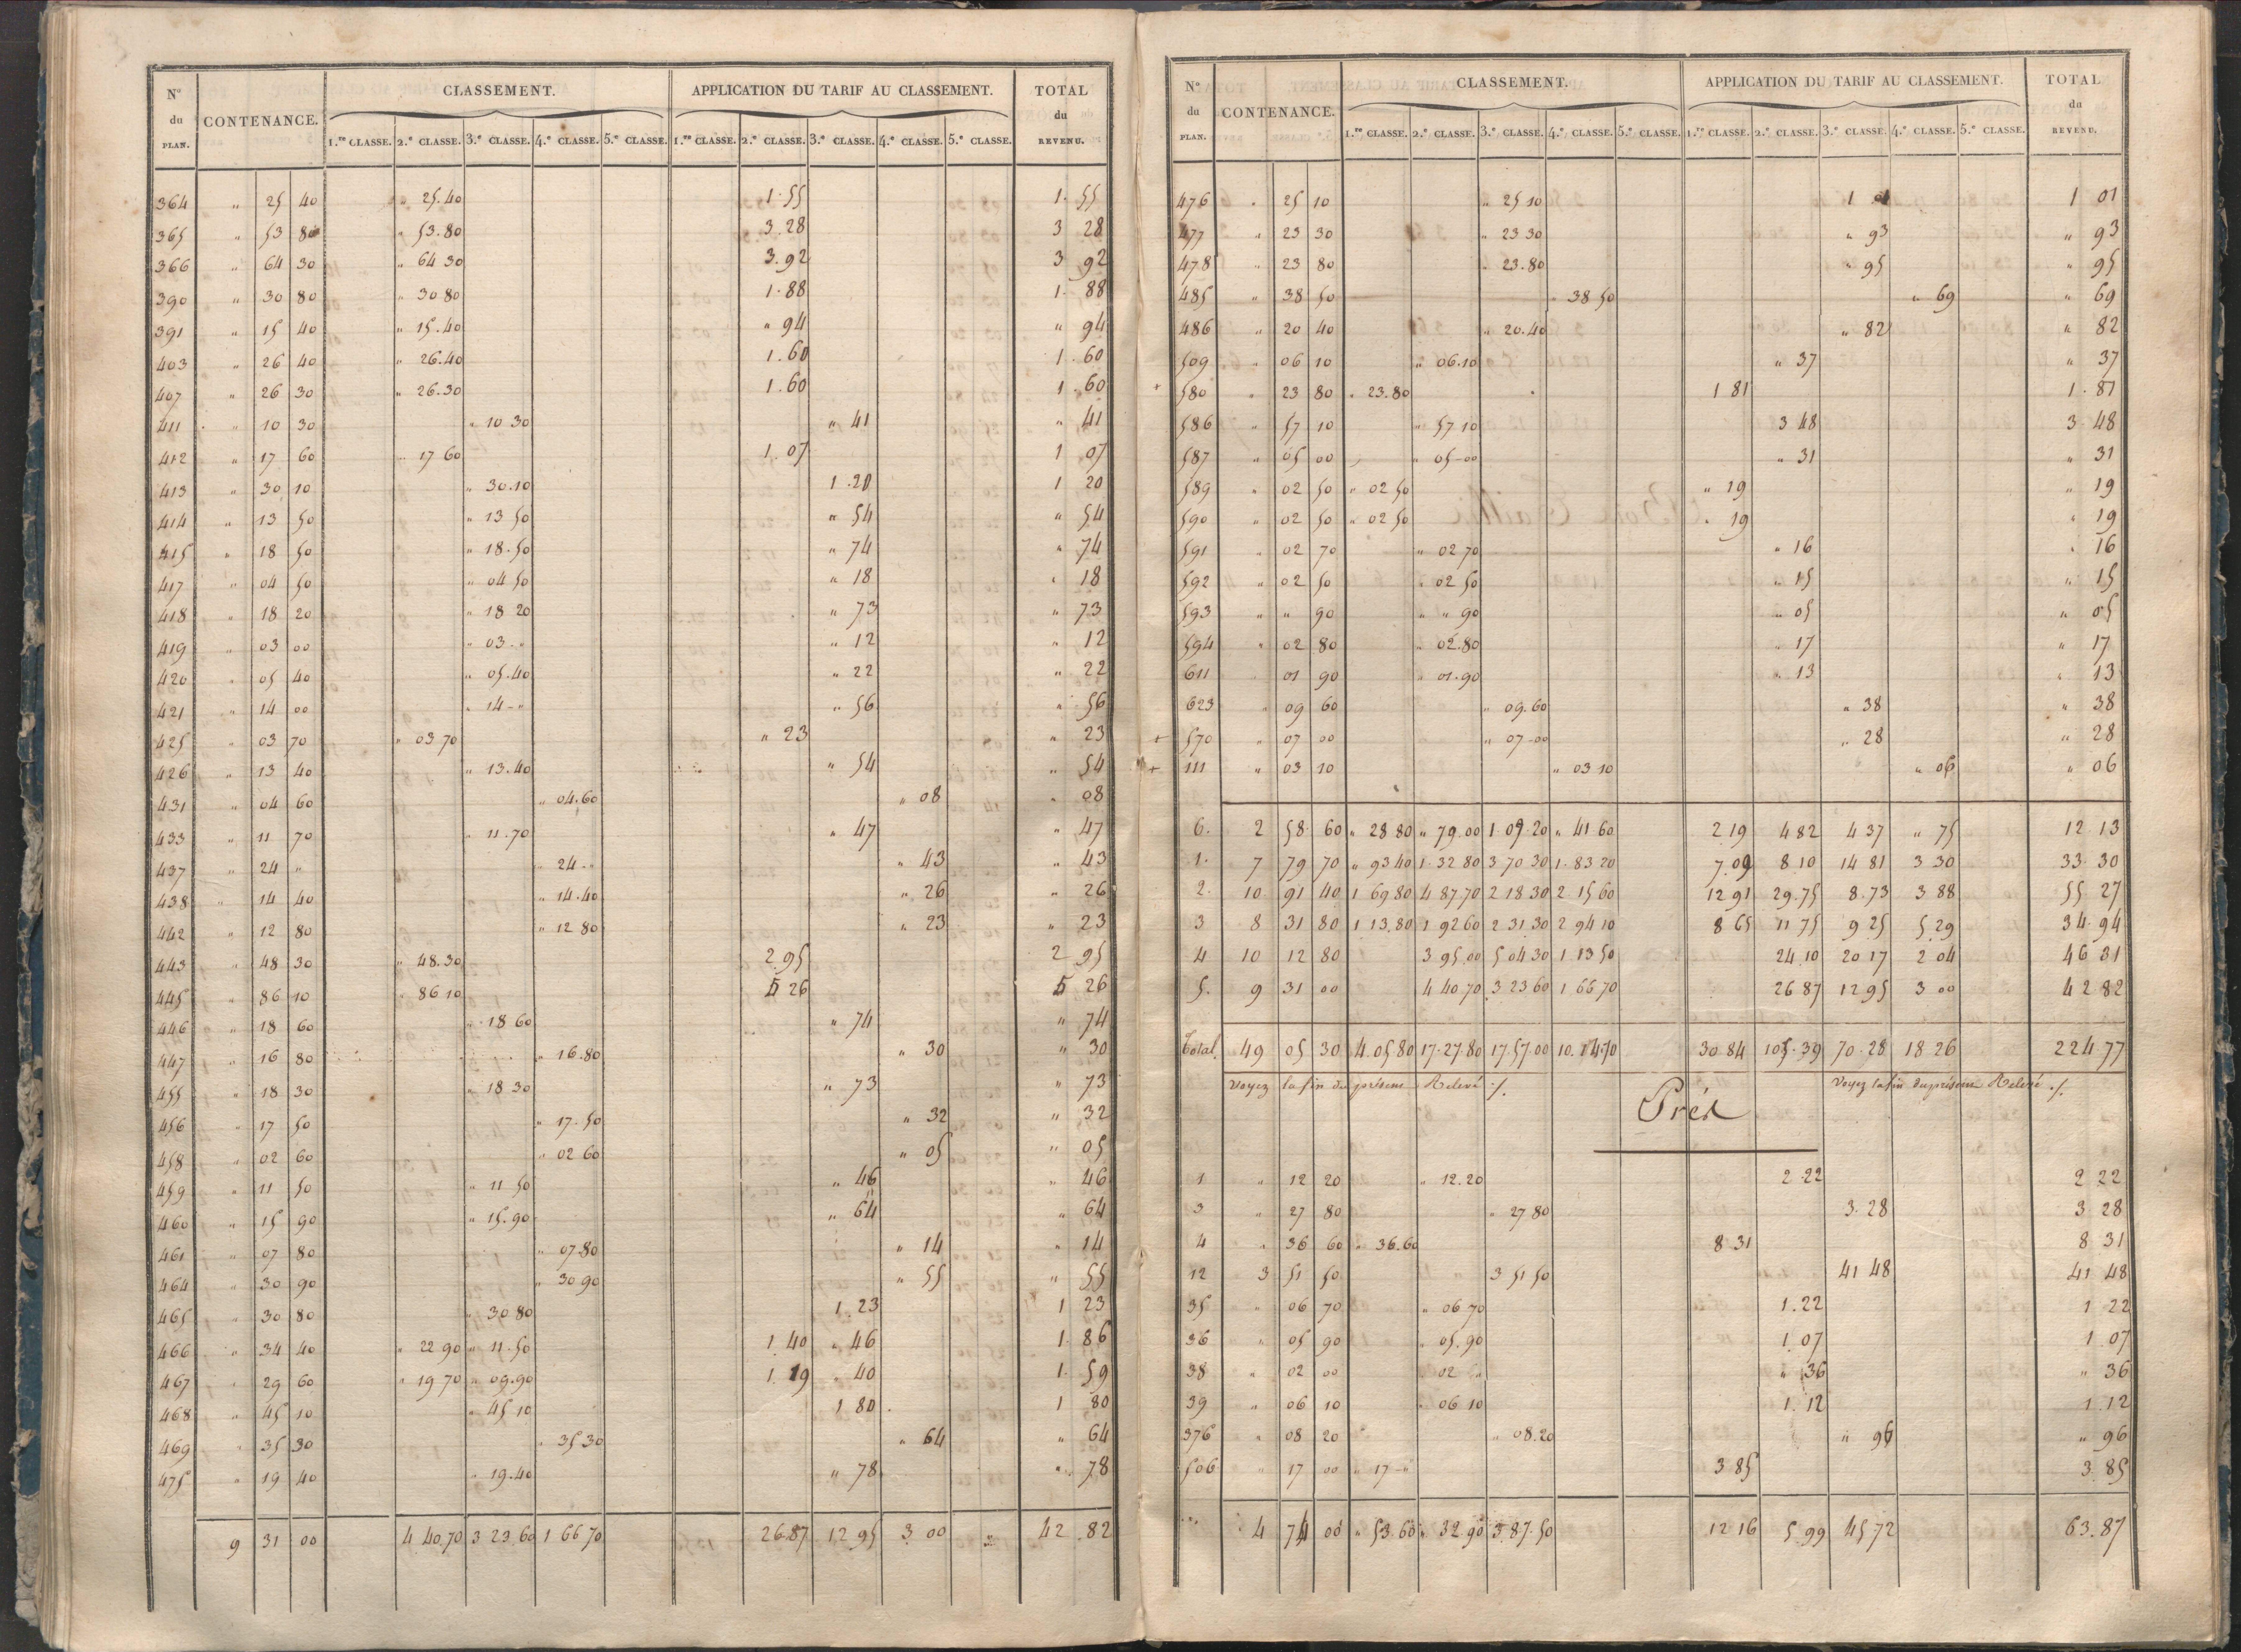 N.º du PLAN. CONTENANCE. CLASSEMENT. APPLICATION DU TARIF AU CLASSEMENT. TOTAL du REVENU.
1.re CLASSE. 2.e CLASSE. 3.e CLASSE. 4.e CLASSE. 5.e CLASSE. 1.re CLASSE. 2.e CLASSE. 3.e CLASSE. 4.e CLASSE. 5.e CLASSE.
364 " 25 40 " 25.40 1.55 1.55
365 " 53 80 " 53.80 3.28 3 28
366 " 64 30 " 64 30 3.92 3 92
390 " 30 80 " 30 80 1.88 1.88
391 " 15 40 " 15.40 " 94 " 94
403 " 26 40 " 26.40 1.60 1.60
407 " 26 30 " 26.30 1.60 1.60
411 " 10 30 " 10 30 " 41 " 41
412 " 17 60 " 17 60 1.07 1 07
413 " 30 10 " 30.10 1.20 1 20
414 " 13 50 " 13 50 " 54 " 54
415 " 18 50 " 18.50 " 74 " 74
417 " 04 50 " 04 50 " 18 " 18
418 " 18 20 " 18 20 " 73 " 73
419 " 03 00 " 03 - " " 12 " 12
420 " 05 40 " 05.40 " 22 " 22
421 " 14 00 " 14 - " " 56 " 56
425 " 03 70 " 03 70 " 23 " 23
426 " 13 40 " 13.40 " 54 " 54
431 " 04 60 " 04.60 " 08 " 08
433 " 11 70 " 11.70 " 47 " 47
437 " 24 " " 24 - " " 43 " 43
438 " 14 40 " 14.40 " 26 " 26
442 " 12 80 " 12 80 " 23 " 23
443 " 48 30 " 48.30 2.95 2 95
445 " 86 10 " 86 10 5 26 5 26
446 " 18 60 " 18 60 " 74 " 74
447 " 16 80 " 16.80 " 30 " 30
455 " 18 30 " 18 30 " 73 " 73
456 " 17 50 " 17.50 " 32 " 32
458 " 02 60 " 02 60 " 05 " 05
459 " 11 50 " 11 50 " 46 " 46
460 " 15 90 " 15.90 " 64 " 64
461 " 07 80 " 07.80 " 14 " 14
464 " 30 90 " 30 90 " 55 " 55
465 " 30 80 " 30 80 1.23 1 23
466 " 34 40 " 22 90 " 11.50 1.40 " 46 1.86
467 " 29 60 " 19 70 " 09.90 1.19 " 40 1.59
468 " 45 10 " 45 10 1 80 1 80
469 " 35 30 " 35 30 " 64 " 64
475 " 19 40 " 19.40 " 78 " 78
9 31 00 4 40.70 3 23 60 1 66 70 26.87 12.95 3 00 " 42.82
N.º du PLAN. CONTENANCE. CLASSEMENT. APPLICATION DU TARIF AU CLASSEMENT. TOTAL du REVENU.
1.re CLASSE. 2.e CLASSE. 3.e CLASSE. 4.e CLASSE. 5.e CLASSE. 1.re CLASSE. 2.e CLASSE. 3.e CLASSE. 4.e CLASSE. 5.e CLASSE.
476 " 25 10 " 25 10 1 01 1 01
477 " 23 30 " 23 30 " 93 " 93
478 " 23 80 " 23.80 " 95 " 95
485 " 38 50 " 38 50 " 69 " 69
486 " 20 40 " 20.40 " 82 " 82
509 " 06 10 " 06.10 " 37 " 37
+ 580 " 23 80 " 23.80 1 81 1.81
586 " 57 10 " 57 10 3 48 3 48
587 " 05 00 " 05-00 " 31 " 31
589 " 02 50 " 02 50 " 19 " 19
590 " 02 50 " 02 50 " 19 " 19
591 " 02 70 " 02 70 " 16 " 16
592 " 02 50 " 02 50 " 15 " 15
593 " " 90 " " 90 " 05 " 05
594 " 02 80 " 02.80 " 17 " 17
611 " 01 90 " 01.90 " 13 " 13
623 " 09 60 " 09.60 " 38 " 38
+ 570 " 07 00 " 07-00 " 28 " 28
+ 111 " 03 10 " 03 10 " 06 " 06
6. 2 58 60 " 28 80 " 79.00 1.09.20 " 41 60 2 19 4 82 4 37 " 75 12 13
1. 7 79 70 " 93 40 1.32 80 3 70 30 1.83 20 7.09 8.10 14 81 3 30 33.30
2. 10 91 40 1 69 80 4 87.70 2 18 30 2 15 60 12 91 29.75 8.73 3 88 55 27
3 8 31 80 1 13.80 1 92 60 2 31.30 2 94 10 8 65 11 75 9 25 5 29 34.94
4 10 12 80 3 95.00 5 04 30 1 13 50 24.10 20 17 2 04 46 31
5. 9 31 00 4 40.70 3 23 60 1 66 70 26 87 12 95 3 00 42 82
Total. 49 05 30 4.05 80 17.27.80 17.57.00 10.14.70 30 84 105.39 70.28 18 26 224 77
Voyez la fin du présent Relevé ./. Voyez la fin du présent Relevé ./.
Prés
1 " 12 20 " 12.20 2.22 2 22
3 " 27 80 " 27 80 3.28 3 28
4 " 36 60 " 36.60 8 31 8 31
12 3 51 50 3 51 50 41 48 41 48
35 " 06 70 " 06 70 1.22 1 22
36 " 05 90 " 05.90 1.07 1 07
38 " 02 00 " 02 " " 36 " 36
39 " 06 10 " 06 10 1.12 1.12
376 " 08 20 " 08.20 " 96 " 96
506 " 17 00 " 17 - " 3 85 3.85
4 74 00 " 53.60 " 32.90 3.87.50 12 16 5.99 45.72 63.87